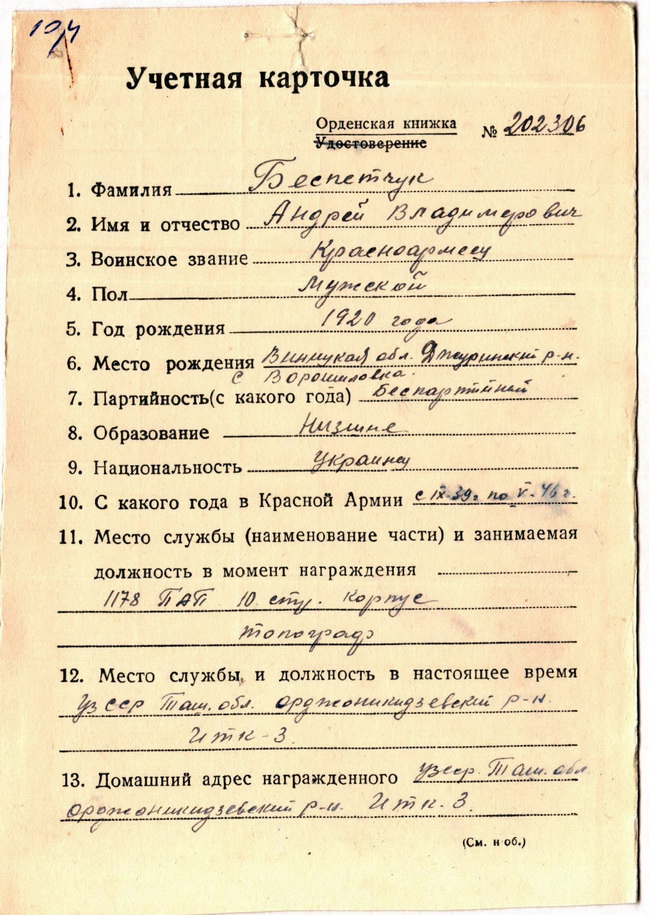 10/4
Учетная карточка
Орденская книжка № 202306
Удостоверение
1. Фамилия Беспетчук
2. Имя и отчество Андрей Владимерович
3. Воинское звание Красноармеец
4. Пол Мужской
5. Год рождения 1920 года
6. Место рождения Винницкая обл. Джуринский р-н.
с Ворошиловка.
7. Партийность(с какого года) Беспартийный
8. Образование Низшие
9. Национальность Украинец
10. С какого года в Красной Армии с IX-39г по V-46 г.
11. Место службы (наименование части) и занимаемая
должность в момент награждения
1178 ПАП 10 стр. Корпус
топограф
12. Место службы и должность в настоящее время
Узсср Таш. обл. орджоникидзевский р-н.
Итк-3.
13. Домашний адрес награжденного Узсср. Таш. обл.
орджоникидзевский р-н. Итк-3.
(См. н об.)